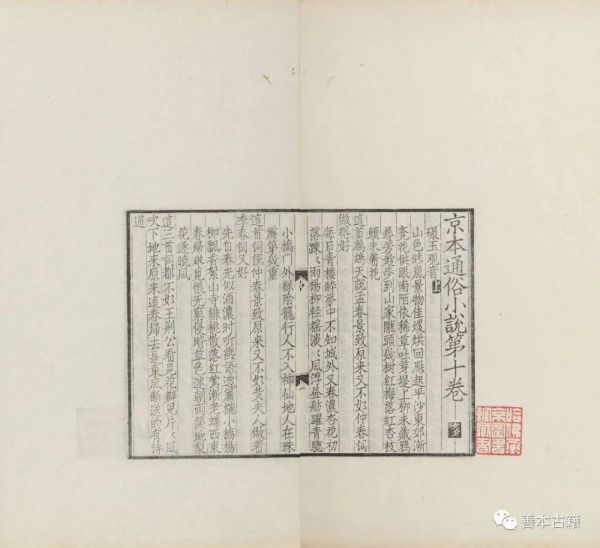 京本通俗小說第十卷
碾玉觀音上
山色晴嵐景物佳煖烘回雁起平沙東郊漸
覺花供眼南陌依稀草吐芽堤上柳未藏鴉
尋芳趂步到山家隴頭幾樹紅梅落紅杏枝
頭未着花
這首鷓鴣天說孟春景致原來又不如仲春詞
做得好
每日青樓醉夢中不知城外又春濃杏花初
落踈〻雨楊柳輕搖淡〻風浮畫舫躍青驄
小橋門外綠陰籠行人不入神仙地人在珠
簾第幾重
這首詞說仲春景致原來又不如黃夫人做着
季春詞又好
先自春光似酒濃時听燕語透簾櫳小橋楊
柳飄香絮山寺緋桃散落紅鶯漸老蝶西東
春歸難覔恨無窮侵堦草色迷朝雨滿地梨
花逐曉風
這三首詞都不如王荆公看見花瓣兒片〻風
吹下地來原來這春歸去是東風斷送的有詩
道
善本古籍